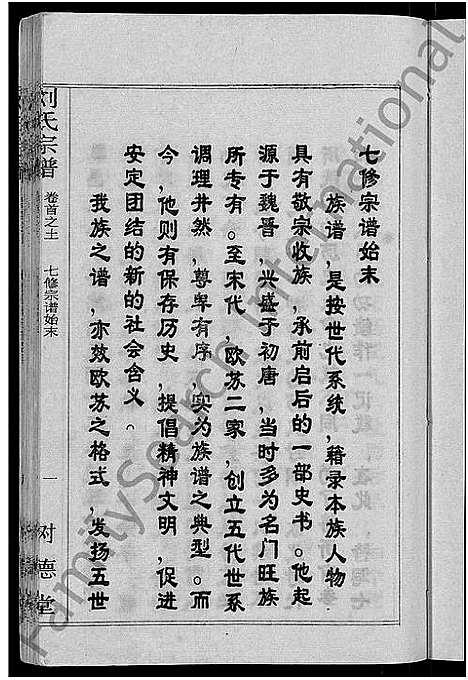 七修宗谱始末
族谱，是按世代系统，籍录本族人物
具有敬宗收族，承前启后的一部史书。他起
源于魏晋，兴盛于初唐，当时多为名门旺族
所专有。至宋代，欧苏二家，创立五代世系
调理井然，尊卑有序，实为族谱之典型。而
今，他则有保存历史，提倡精神文明，促进
安定团结的新的社会含义。
我族之谱，亦效欧苏之格式，发扬五世
刘氏宗谱
卷首之上
七修宗谱始末
一
对德堂
FamilySearch International